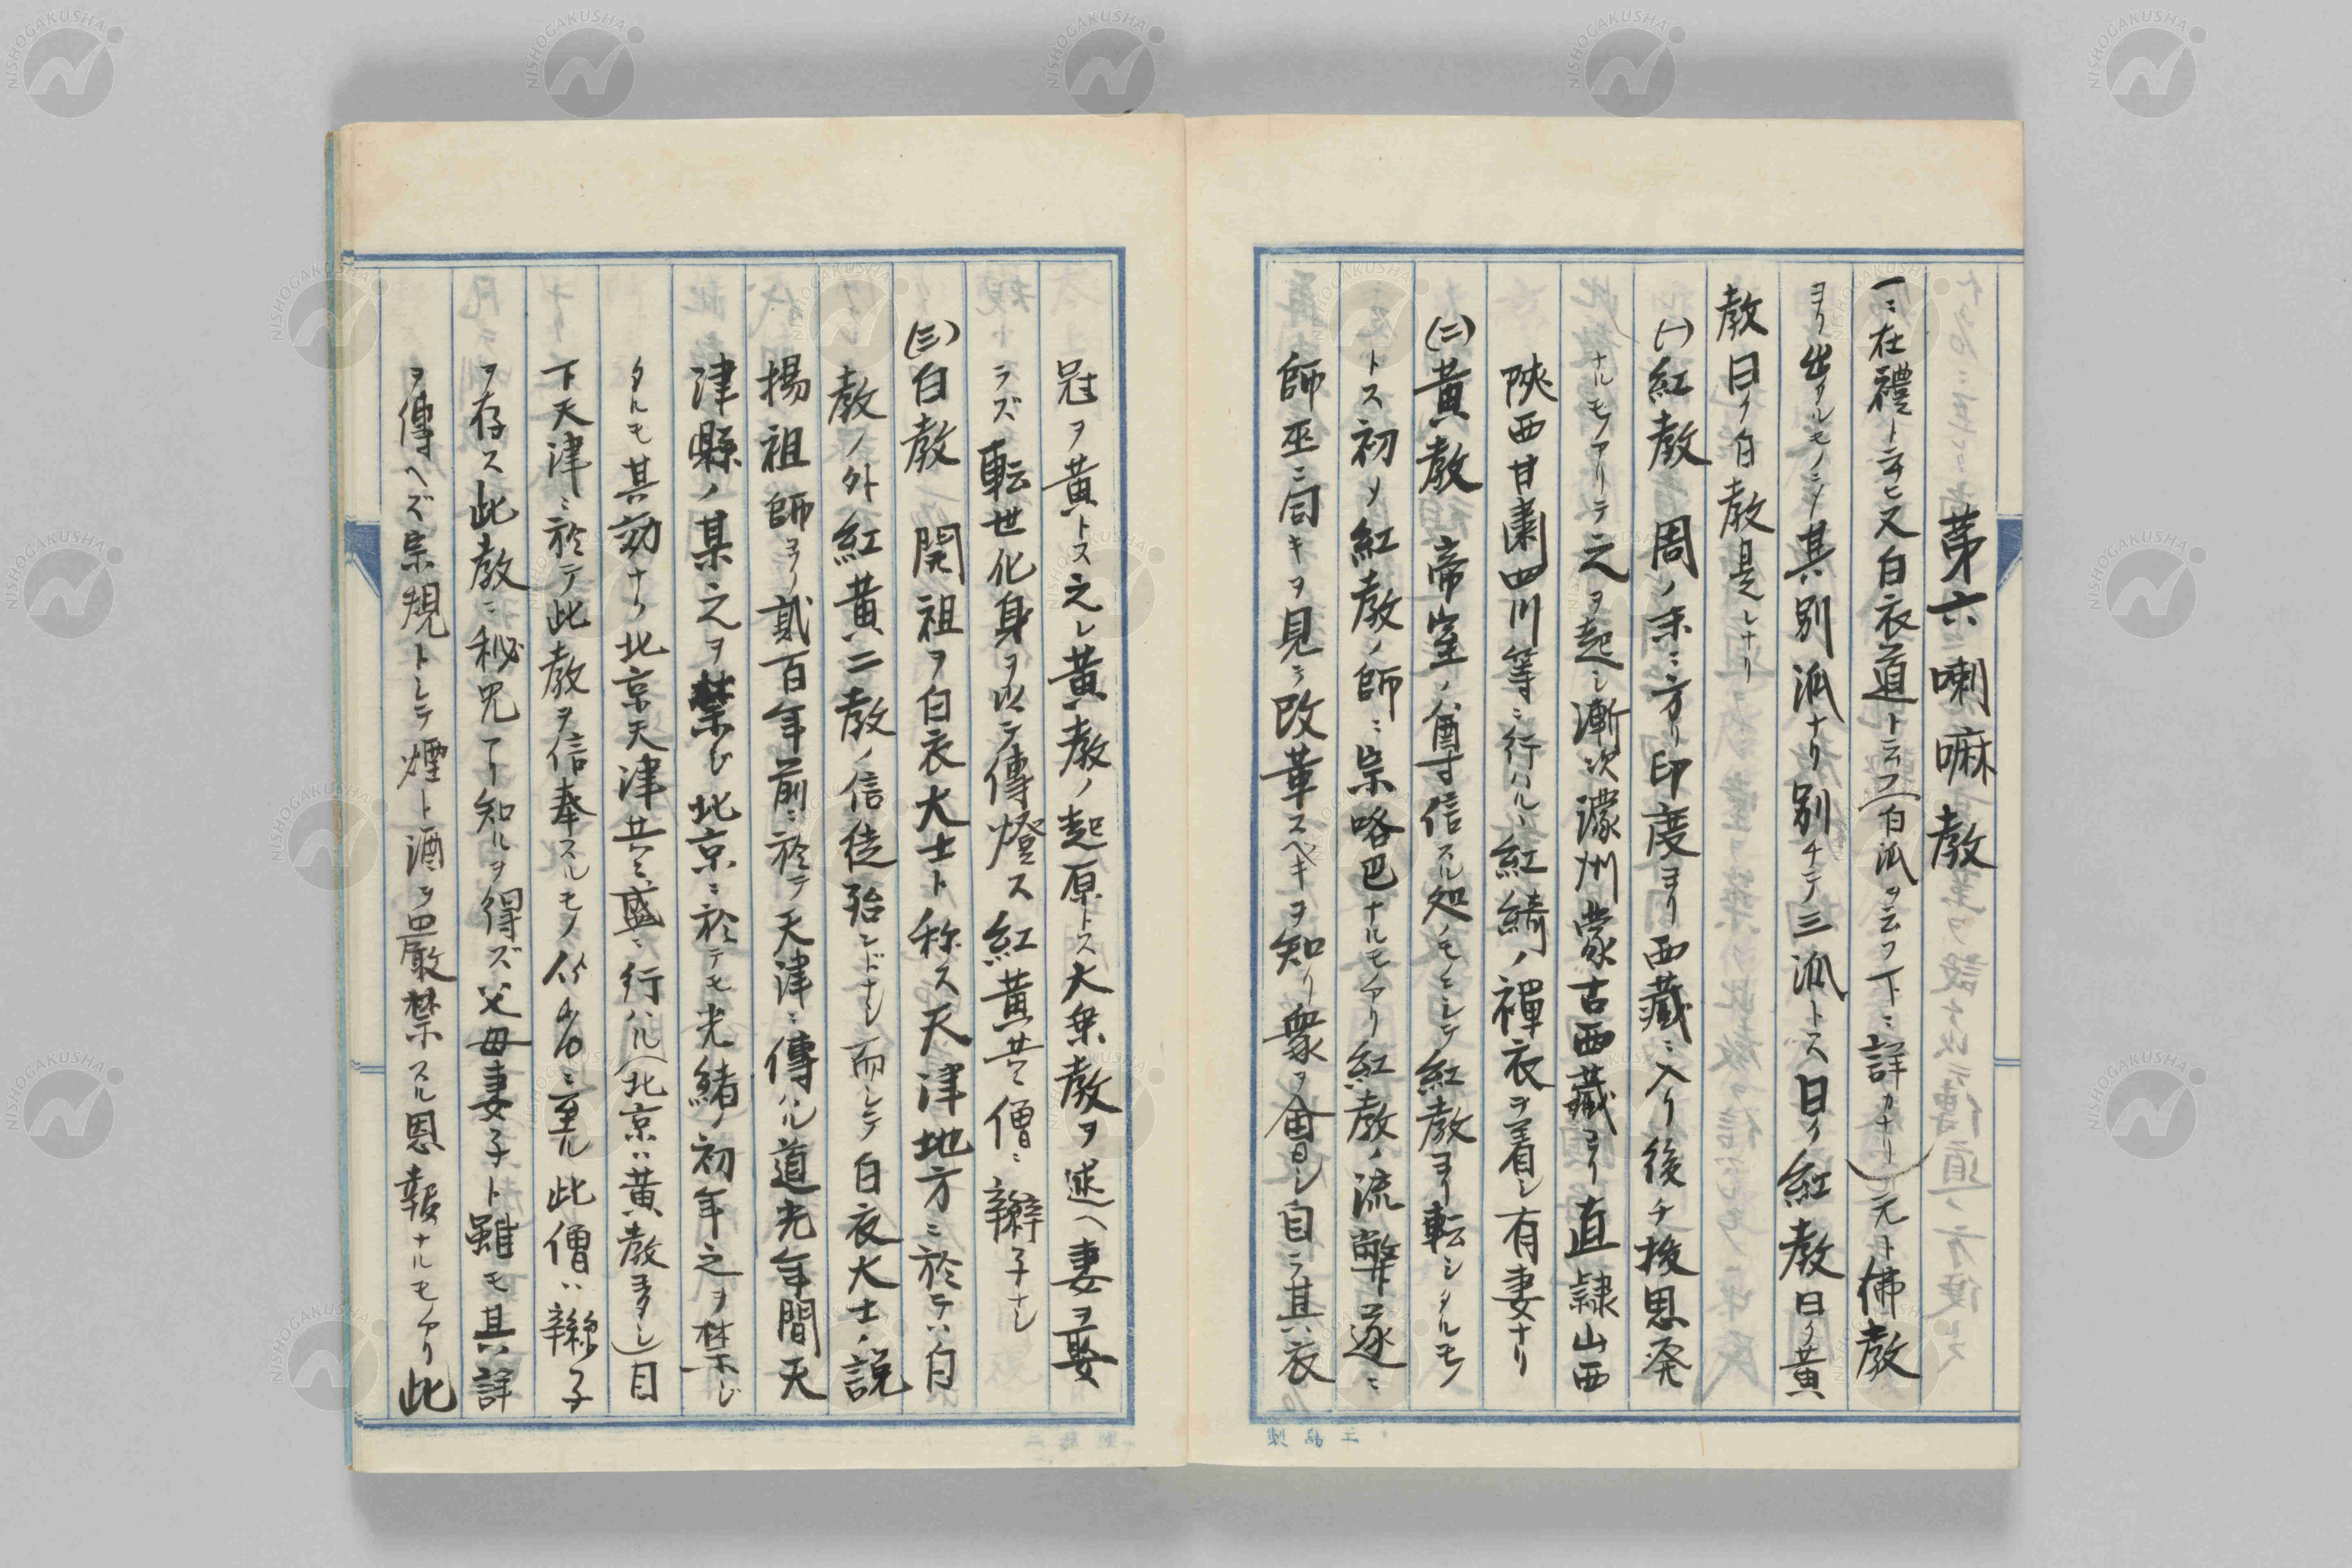 第六喇嘛教
一ニ在禮ト云ヒ又白衣道ト云フ(白派ヲ云フ下ニ詳カナリ)元ト佛教
ヨリ出タルモノニシテ其別派ナリ別チテ三派トス曰ク紅教曰ク黄
教曰ク白教是レナリ
(一)紅教 周ノ末ニ方リ印度ヨリ西藏ニ入リ後チ拔思発
ナルモノアリテ之ヲ起シ漸次濛州蒙古西藏ヨリ直隷山西
陝西甘肅四川等ニ行ハル紅綺ノ禪衣ヲ着シ有妻ナリ
(二)黄教 帝室ノ尊信スル処ノモノニシテ紅教ヨリ転シタルモノ
トス初メ紅教ノ師ニ宗咯巴ナルモノアリ紅教ノ流弊遂ニ
師巫ニ同キヲ見テ改革スベキヲ知リ衆ヲ會シ自ラ其衣
冠ヲ黄トス之レ黄教ノ起原トス大乗教ヲ述ヘ妻ヲ娶
ラズ転世化身ヲ以テ傳燈ス紅黄共ニ僧ニ辮子ナシ
(三)白教 開祖ヲ白衣大士ト称ス天津地方ニ於テハ白
教ノ外紅黄二教ノ信徒殆ンドナシ而シテ白衣大士ノ説
揚祖師ヨリ貳百年前ニ於テ天津ニ傳ハル道光年間天
津縣ノ某之ヲ禁ジ北京ニ於テモ光緒ノ初年之ヲ禁ジ
タルモ其効ナク北京天津共ニ盛ニ行ハル(北京ハ黄教多シ)目
下天津ニ於テ此教ヲ信奉スルモノ ニ至ル此僧ハ辮子
ヲ存ス此教ニ秘咒アリ知ルヲ得ズ父母妻子ト雖モ其詳
ヲ傳ヘズ宗規トシテ煙ト酒ヲ嚴禁スル恩報ナルモノアリ此